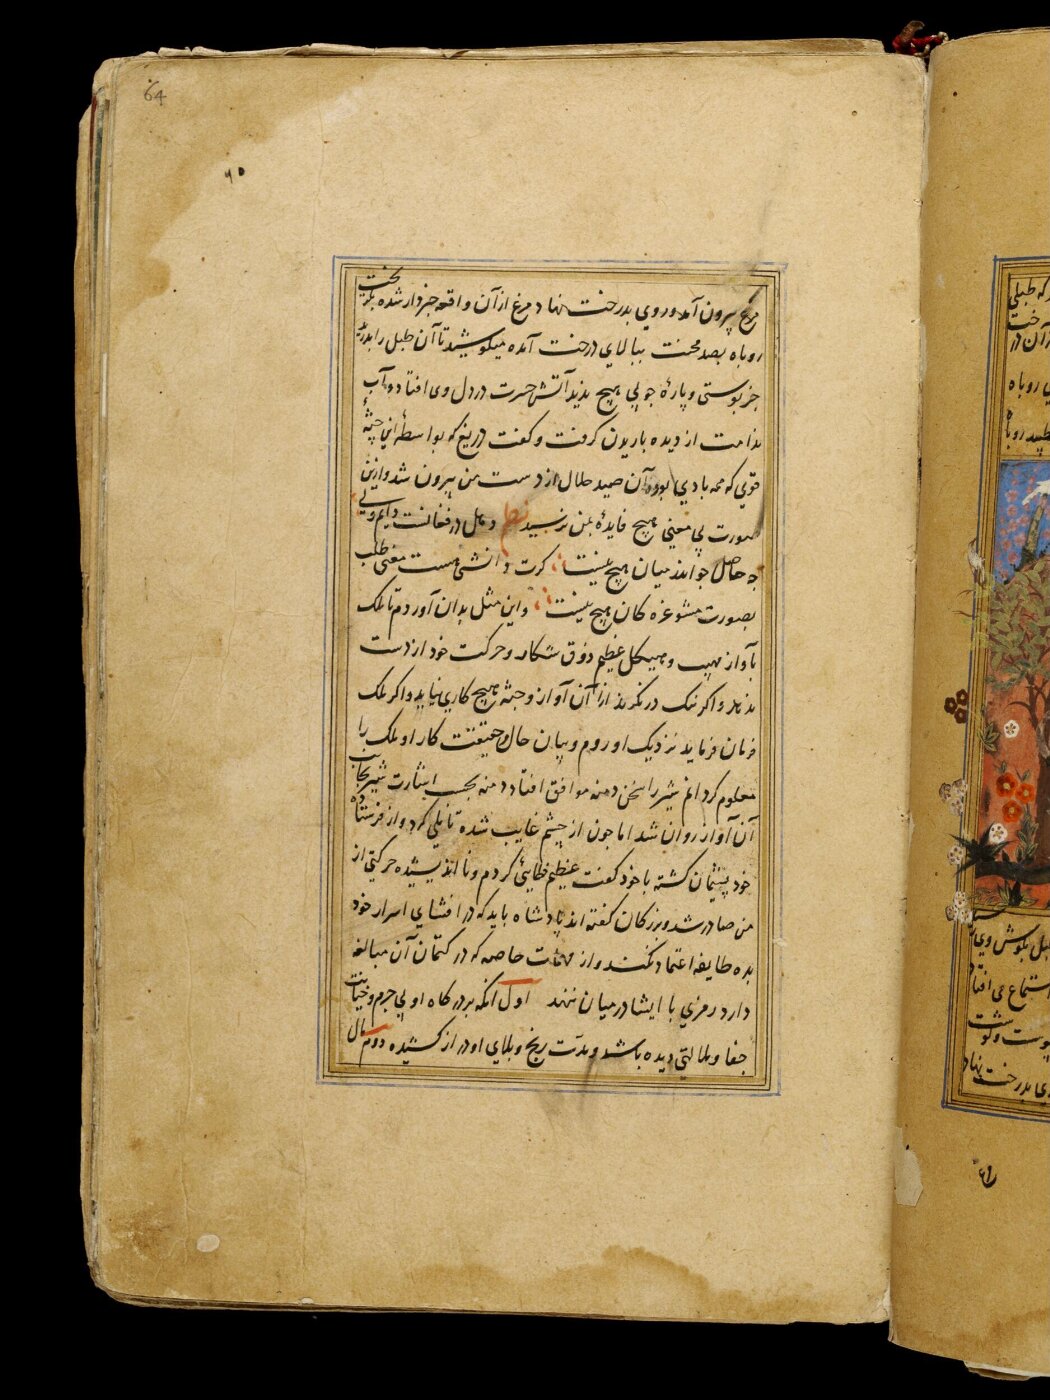 64
۶۵
مرغ بیرون آمد و روی بدرخت نهاد مرغ از آن واقعه خبردار شده بگریخت
روباه بصد محنت ببالای درخت آمده میکوشید تا آن طبل را بدرید
جز پوستی و پارهٔ چوبی هیچ ندید آتش حسرت در دل وی افتاد و آب
ندامت از دیده باریدن گرفت و گفت دریغ که بواسطهٔ این جثهٔ
قوی که همه بادی بود آن صید حلال از دست من بیرون شد و ازین
صورت بی معنی هیچ فایدهٔ بمن نرسید نظم دهل در فغانست دایم ولی
چه حاصل چو اندر میان هیچ نیست گرت دانشی هست معنی طلب
بصورت مشو غره کان هیچ نیست و این مثل بدان آوردم تا ملک
بآواز مهیب و هیکل عظیم ذوق شکار و حرکت خود از دست
ندهد و اگر نیک در نگرند از آن آواز و جثه هیچ کاری نیاید و اگر ملک
فرمان فرماید نزدیک او روم و بیان حال و حقیقت کار او ملک را
معلوم گردانم شیر را سخن دمنه موافق افتاد دمنه بحسب اشارت شیر بجانب
آن آواز روان شد اما چون از چشم غایب شده تاملی کرد و از فرستاده
خود پشیمان گشته با خود گفت عظیم خطایی کردم و نا اندیشیده حرکتی از
من صادر شد و بزرگان گفته اند پادشاه باید که در افشای اسرار خود
بده طایفه اعتماد نکند و از مهمات خاصه که در کتمان آن مبالغه
دارد رمزی با ایشا در میان ننهد اول آنکه بر درگاه او بی جرم و خیانت
جفا و ملالتی دیده باشد و مدت رنج و بلای او دراز کشیده دوم مال